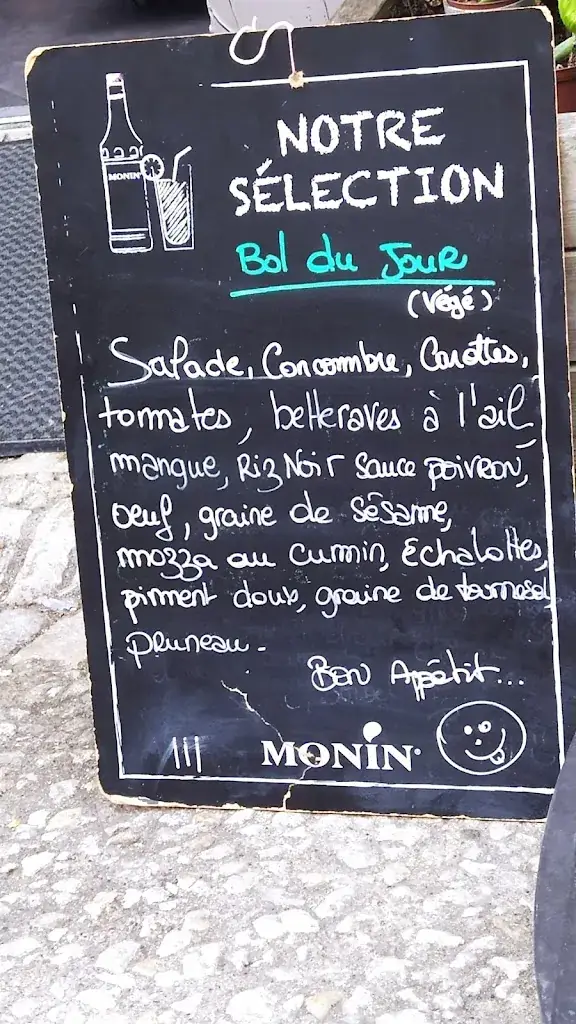 MONIN
NOTRE
SÉLECTION
Bol du Jour
(Végé)
Salade, Concombre, Carottes,
tomates, betteraves à l'ail
mangue, Riz Noir Sauce poivron,
oeuf, graine de sésame,
mozza au cumin, Echalottes,
piment doux, graine de tournesol,
pruneau.
Bon Appétit...
MONIN